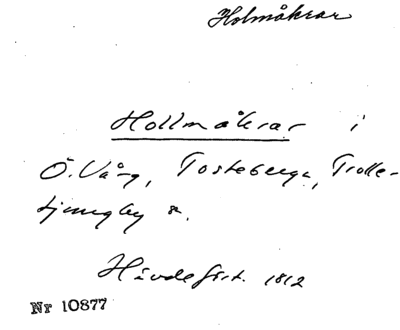 Holmåkrar
Hollmåkrar i
Ö. Vång, Tosteberga, Trolle-
ljungby
1812
Nr 10877